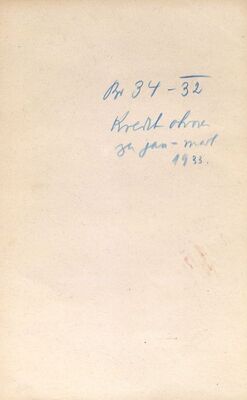 Br 34-32
Kredit otvor
za jan-mart
1933.